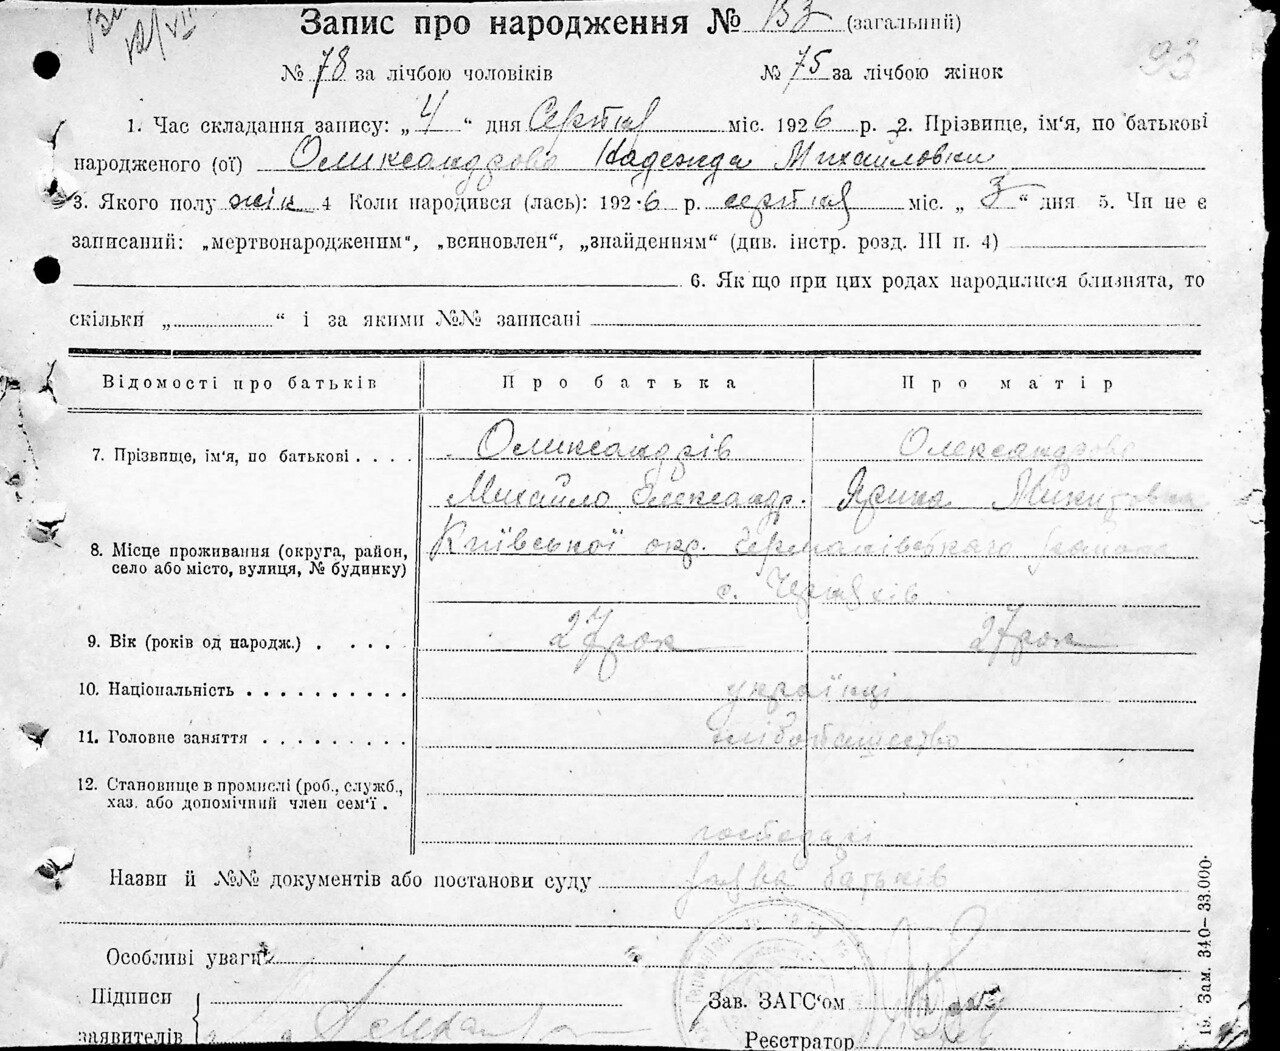 Запис про народження № 153 (загальний)
93
№ 78 за лічбою чоловіків № 75 за лічбою жінок
1. Час складання запису: „ 4 “ дня Серпня міс. 1926 р. 2. Прізвище, ім'я, по батькові
народженого (ої) Олександрова Надежда Михайловна
3. Якого полу жін 4 Коли народився (лась): 1926 р. серпня міс. „ 3 “ дня 5. Чи не є
записаний: „мертвонародженим“, „всиновлен“, „знайденням“ (див. інстр. розд. III п. 4)
6. Як що при цих родах народилися близнята, то
скільки „ “ і за якими №№ записані
Відомості про батьків Про батька Про матір
7. Прізвище, ім'я, по батькові . . . . Олександрів Олександрова
Михайло Олександр. Ярина Микитовна
8. Місце проживання (округа, район, село або місто, вулиця, № будинку) Київської окр. Германівського района
с.
9. Вік (років од народж.) . . . . . 27 рок 27 рок
10. Національність . . . . . . . . . . українці
11. Головне заняття . . . . . . . . . хліборобство
12. Становище в промислі (роб., служб.,
хаз. або допомічний член сем'ї .
господарі
Назви й №№ документів або постанови суду заява батьків
Особливі уваги
Підписи Зав. ЗАГС'ом
заявителів Реєстратор
19. Зам. 340—33.000.